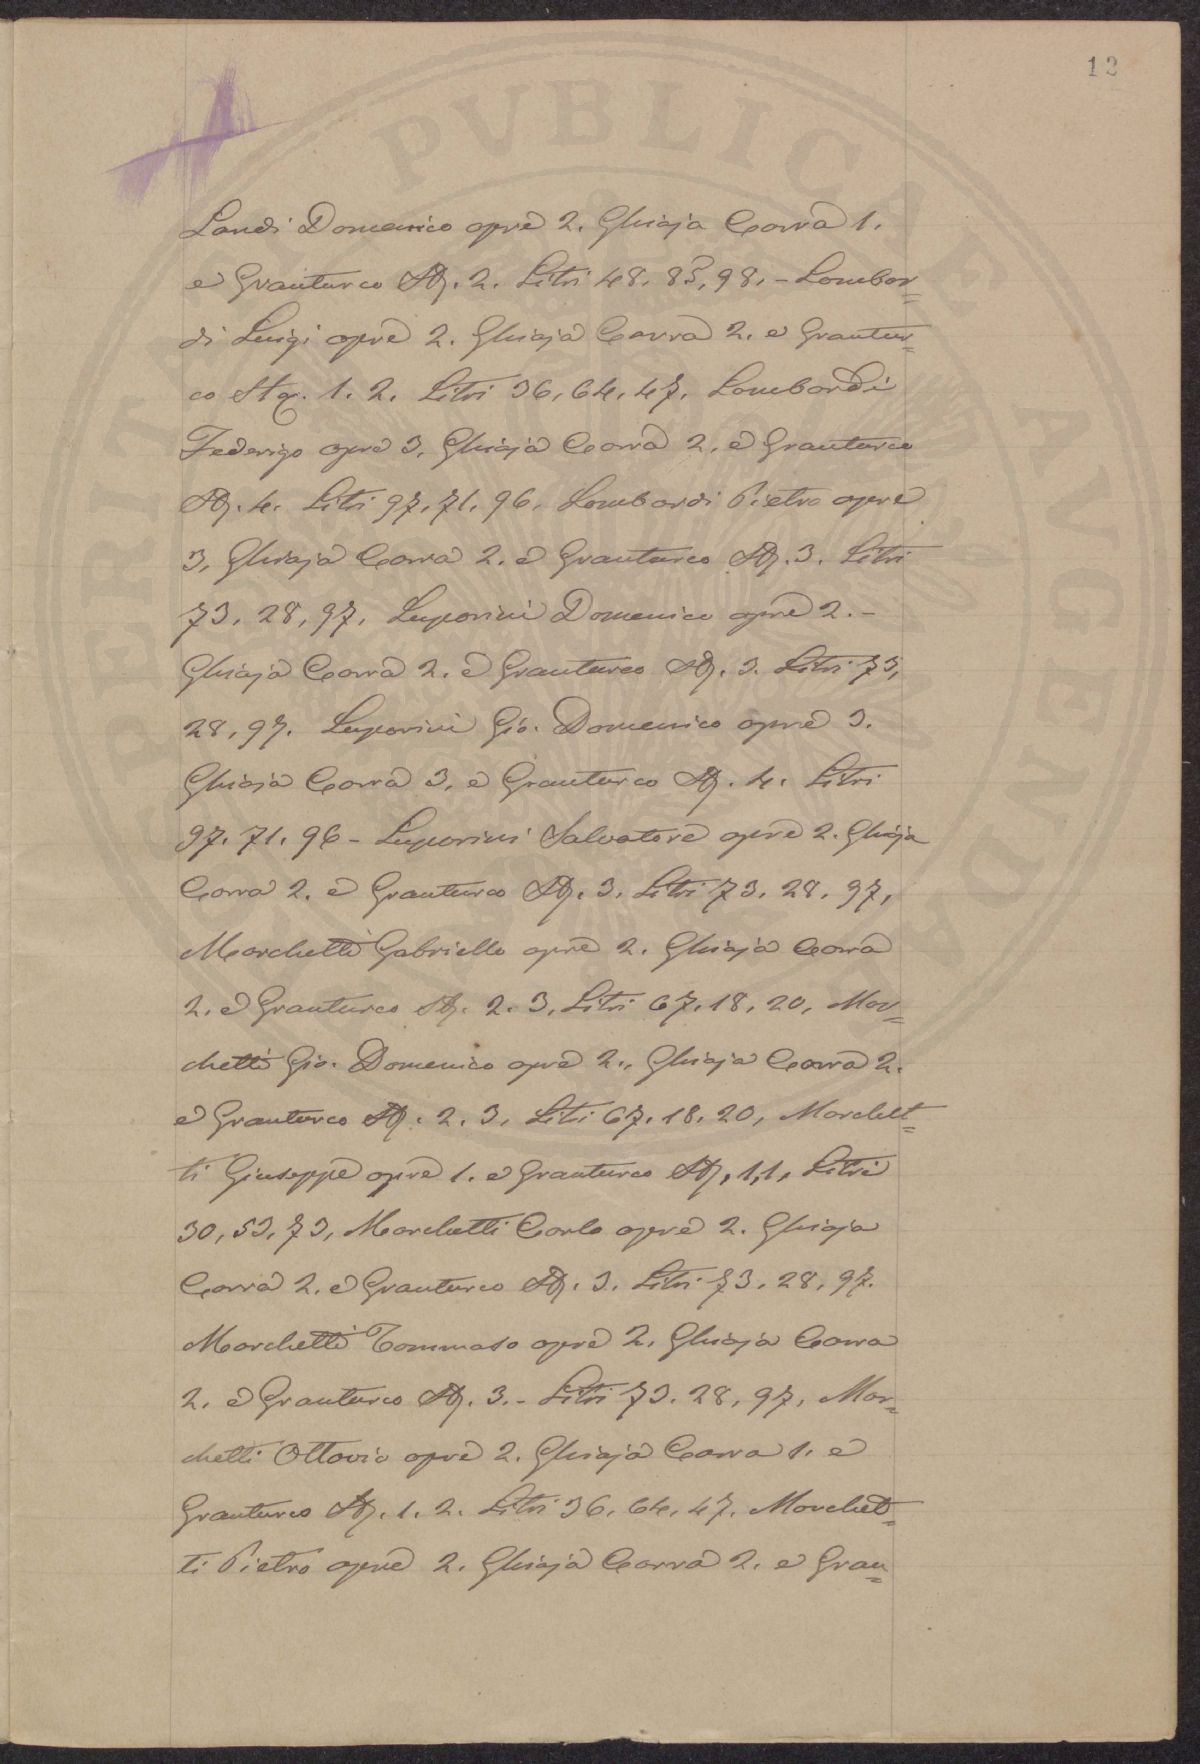 12
PVBLICAE
AVGENDAE
Landi Domenico opre 2. Ghiaja Carra 1.
e Granturco St. 2. Litri 48. 85, 98. - Lombar=
di Luigi opre 2. Ghiaja Carra 2. e Grantur=
co St. 1. 2. Litri 36, 64, 47, Lombardi
Federigo opre 3, Ghiaja Carra 2. e Granturco
St. 4. Litri 97, 71, 96, Lombardi Pietro opre
3, Ghiaja Carra 2. e Granturco St. 3. Litri
73, 28, 97, Luporini Domenico opre 2. -
Ghiaja Carra 2. e Granturco St. 3. Litri 73,
28, 97. Luporini Gio. Domenico opre 3.
Ghiaja Carra 3, e Granturco St. 4. Litri
97. 71. 96 - Luporini Salvatore opre 2. Ghiaja
Carra 2. e Granturco St. 3. Litri 73. 28. 97,
Marchetti Gabriello opre 2. Ghiaja Carra
2. e Granturco St. 2. 3, Litri 67. 18, 20, Mar=
chetti Gio. Domenico opre 2., Ghiaja Carra 2.
e Granturco St. 2. 3, Litri 67. 18. 20, Marchet=
ti Giuseppe opre 1. e Granturco St, 1, 1, Litri
30, 53, 73, Marchetti Carlo opre 2. Ghiaja
Carra 2. e Granturco St. 3. Litri 73. 28, 97.
Marchetti Tommaso opre 2. Ghiaja Carra
2. e Granturco St. 3. - Litri 73. 28, 97, Mar=
chetti Ottavio opre 2. Ghiaja Carra 1. e
Granturco St. 1. 2. Litri 36. 64. 47. Marchet=
ti Pietro opre 2. Ghiaja Carra 2. e Gran=